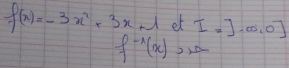 f(x) = -3x² + 3x - 1 et I = ]-∞,0]
f⁻¹(x)